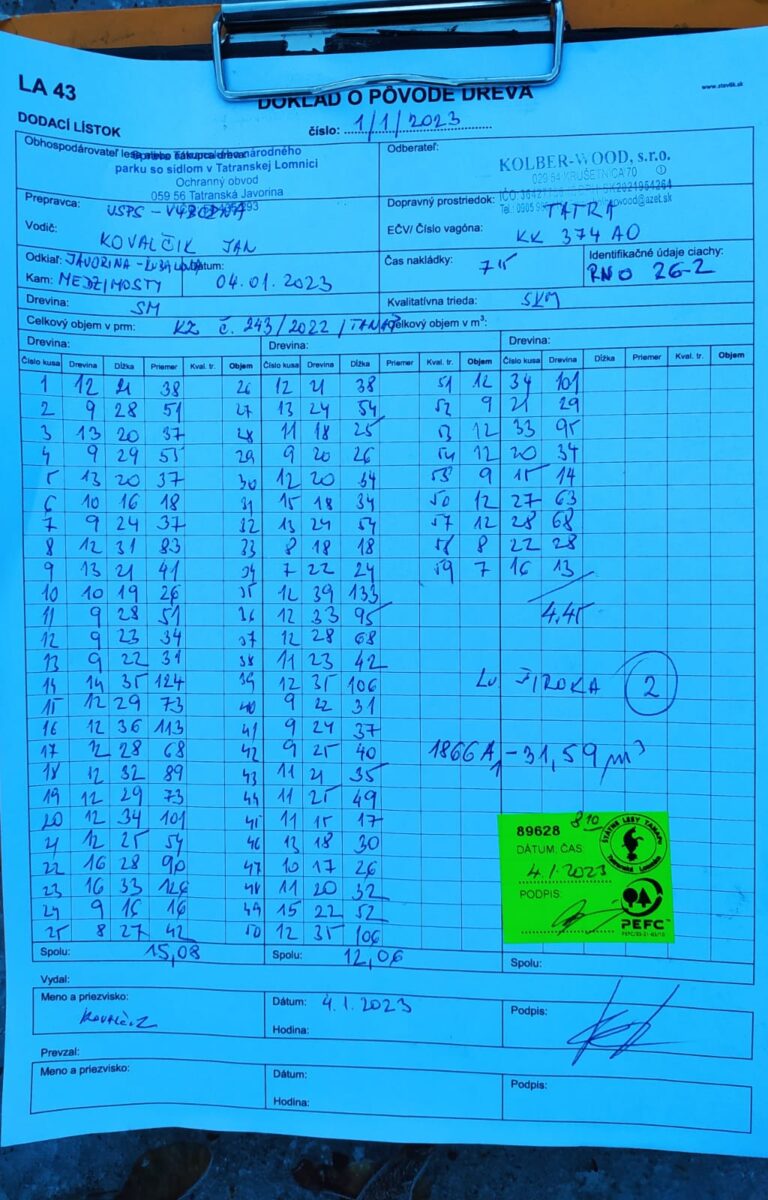 LA 43
www.stavlik.sk
DOKLAD O PÔVODE DREVA
DODACÍ LÍSTOK
číslo: 1/1/2023
Obhospodárovateľ
Správa Tatranského národného
parku so sídlom v Tatranskej Lomnici
Ochranný obvod
059 56 Tatranská Javorina
Odberateľ:
KOLBER-WOOD, s.r.o.
029 54 KRUŠETNICA 70
Prepravca: USPS - VÝBORNÁ
Dopravný prostriedok: TATRA
Vodič: KOVALČIK JAN
EČV/ Číslo vagóna: KK 374 AO
Odkiaľ: JAVORINA -
Dátum: 04.01.2023
Kam: MEDZIMOSTY
Čas nakládky: 7 15
Identifikačné údaje ciachy:
RNO 26-2
Drevina: SM
Kvalitatívna trieda: SKM
Celkový objem v prm: KZ č. 243/2022 / TANAP
Celkový objem v m³:
Drevina: Drevina: Drevina:
Číslo kusa Drevina Dĺžka Priemer Kval. tr. Objem Číslo kusa Drevina Dĺžka Priemer Kval. tr. Objem Číslo kusa Drevina Dĺžka Priemer Kval. tr. Objem
1 12 21 38 26 12 21 38 51 12 34 101
2 9 28 51 27 13 24 54 52 9 21 29
3 13 20 37 28 11 18 25 53 12 33 95
4 9 29 55 29 9 20 26 54 12 20 34
5 13 20 37 30 12 20 34 55 9 15 14
6 10 16 18 31 15 18 34 56 12 27 63
7 9 24 37 32 13 24 54 57 12 28 68
8 12 31 83 33 8 18 18 58 8 22 28
9 13 21 41 34 7 22 24 59 7 16 13
10 10 19 26 35 12 39 133
11 9 28 51 36 12 33 95 4,45
12 9 23 34 37 12 28 68
13 9 22 31 38 11 23 42
14 14 35 124 39 12 35 106 LV ŠIROKA 2
15 12 29 73 40 9 22 31
16 12 36 113 41 9 24 37
17 12 28 68 42 9 25 40 1866A1 - 31,59 m³
18 12 32 89 43 11 21 35
19 12 29 73 44 11 25 49
20 12 34 101 45 11 15 17
21 12 25 54 46 13 18 30
22 16 28 90 47 10 17 26
23 16 33 126 48 11 20 32
24 9 16 16 49 15 22 52
25 8 27 42 50 12 35 106
89628 8 10
DÁTUM, ČAS:
4.1.2023
PODPIS:
ŠTÁTNE LESY TANAPU
PEFC
Spolu: 15,08 Spolu: 12,06 Spolu:
Vydal:
Meno a priezvisko: Kovalčik
Dátum: 4.1.2023
Hodina:
Podpis:
Prevzal:
Meno a priezvisko:
Dátum:
Hodina:
Podpis: